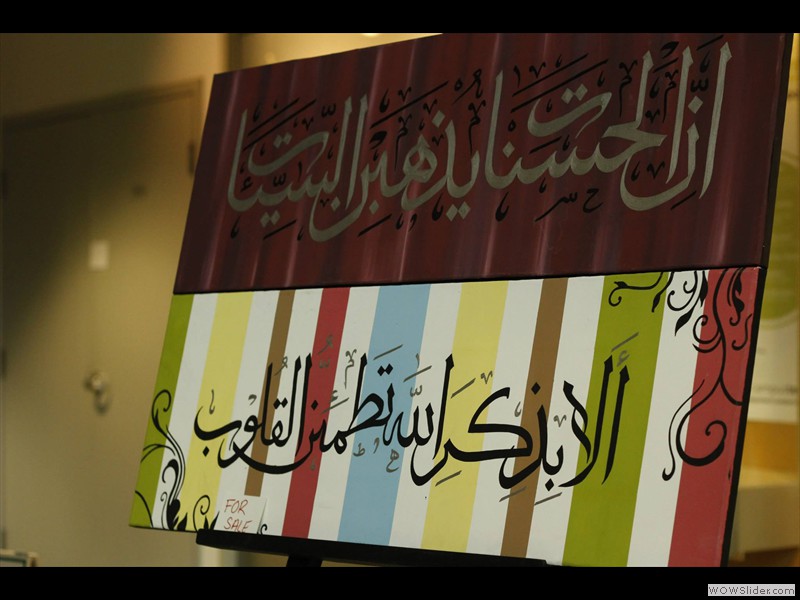 إن الحسنات يذهبن السيئات
ألا بذكر الله تطمئن القلوب
FOR
SALE
WOWSlider.com